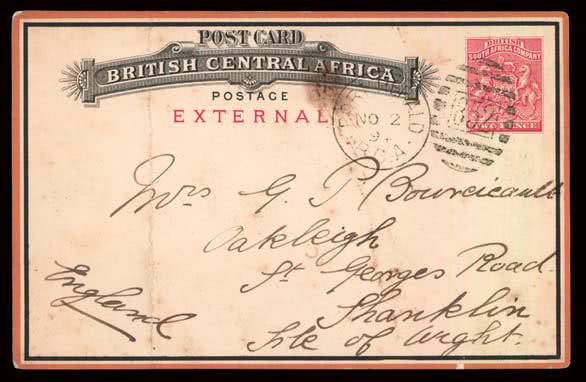 POST CARD
BRITISH CENTRAL AFRICA
POSTAGE
EXTERNAL
BRITISH
SOUTH AFRICA COMPANY
TWO PENCE
NO 2
B.C.A.
Mrs G. P. Bourcicault
Oakleigh
St Georges Road
Shanklin
Isle of Wight.
England